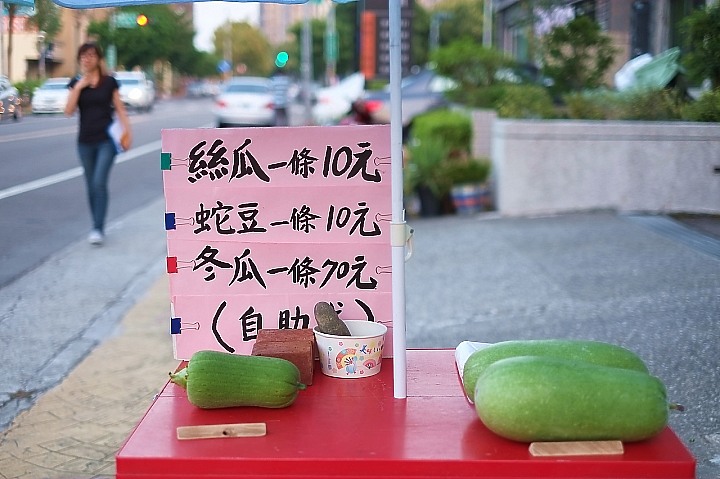 絲瓜一條10元
蛇豆一條10元
冬瓜一條70元
(自助